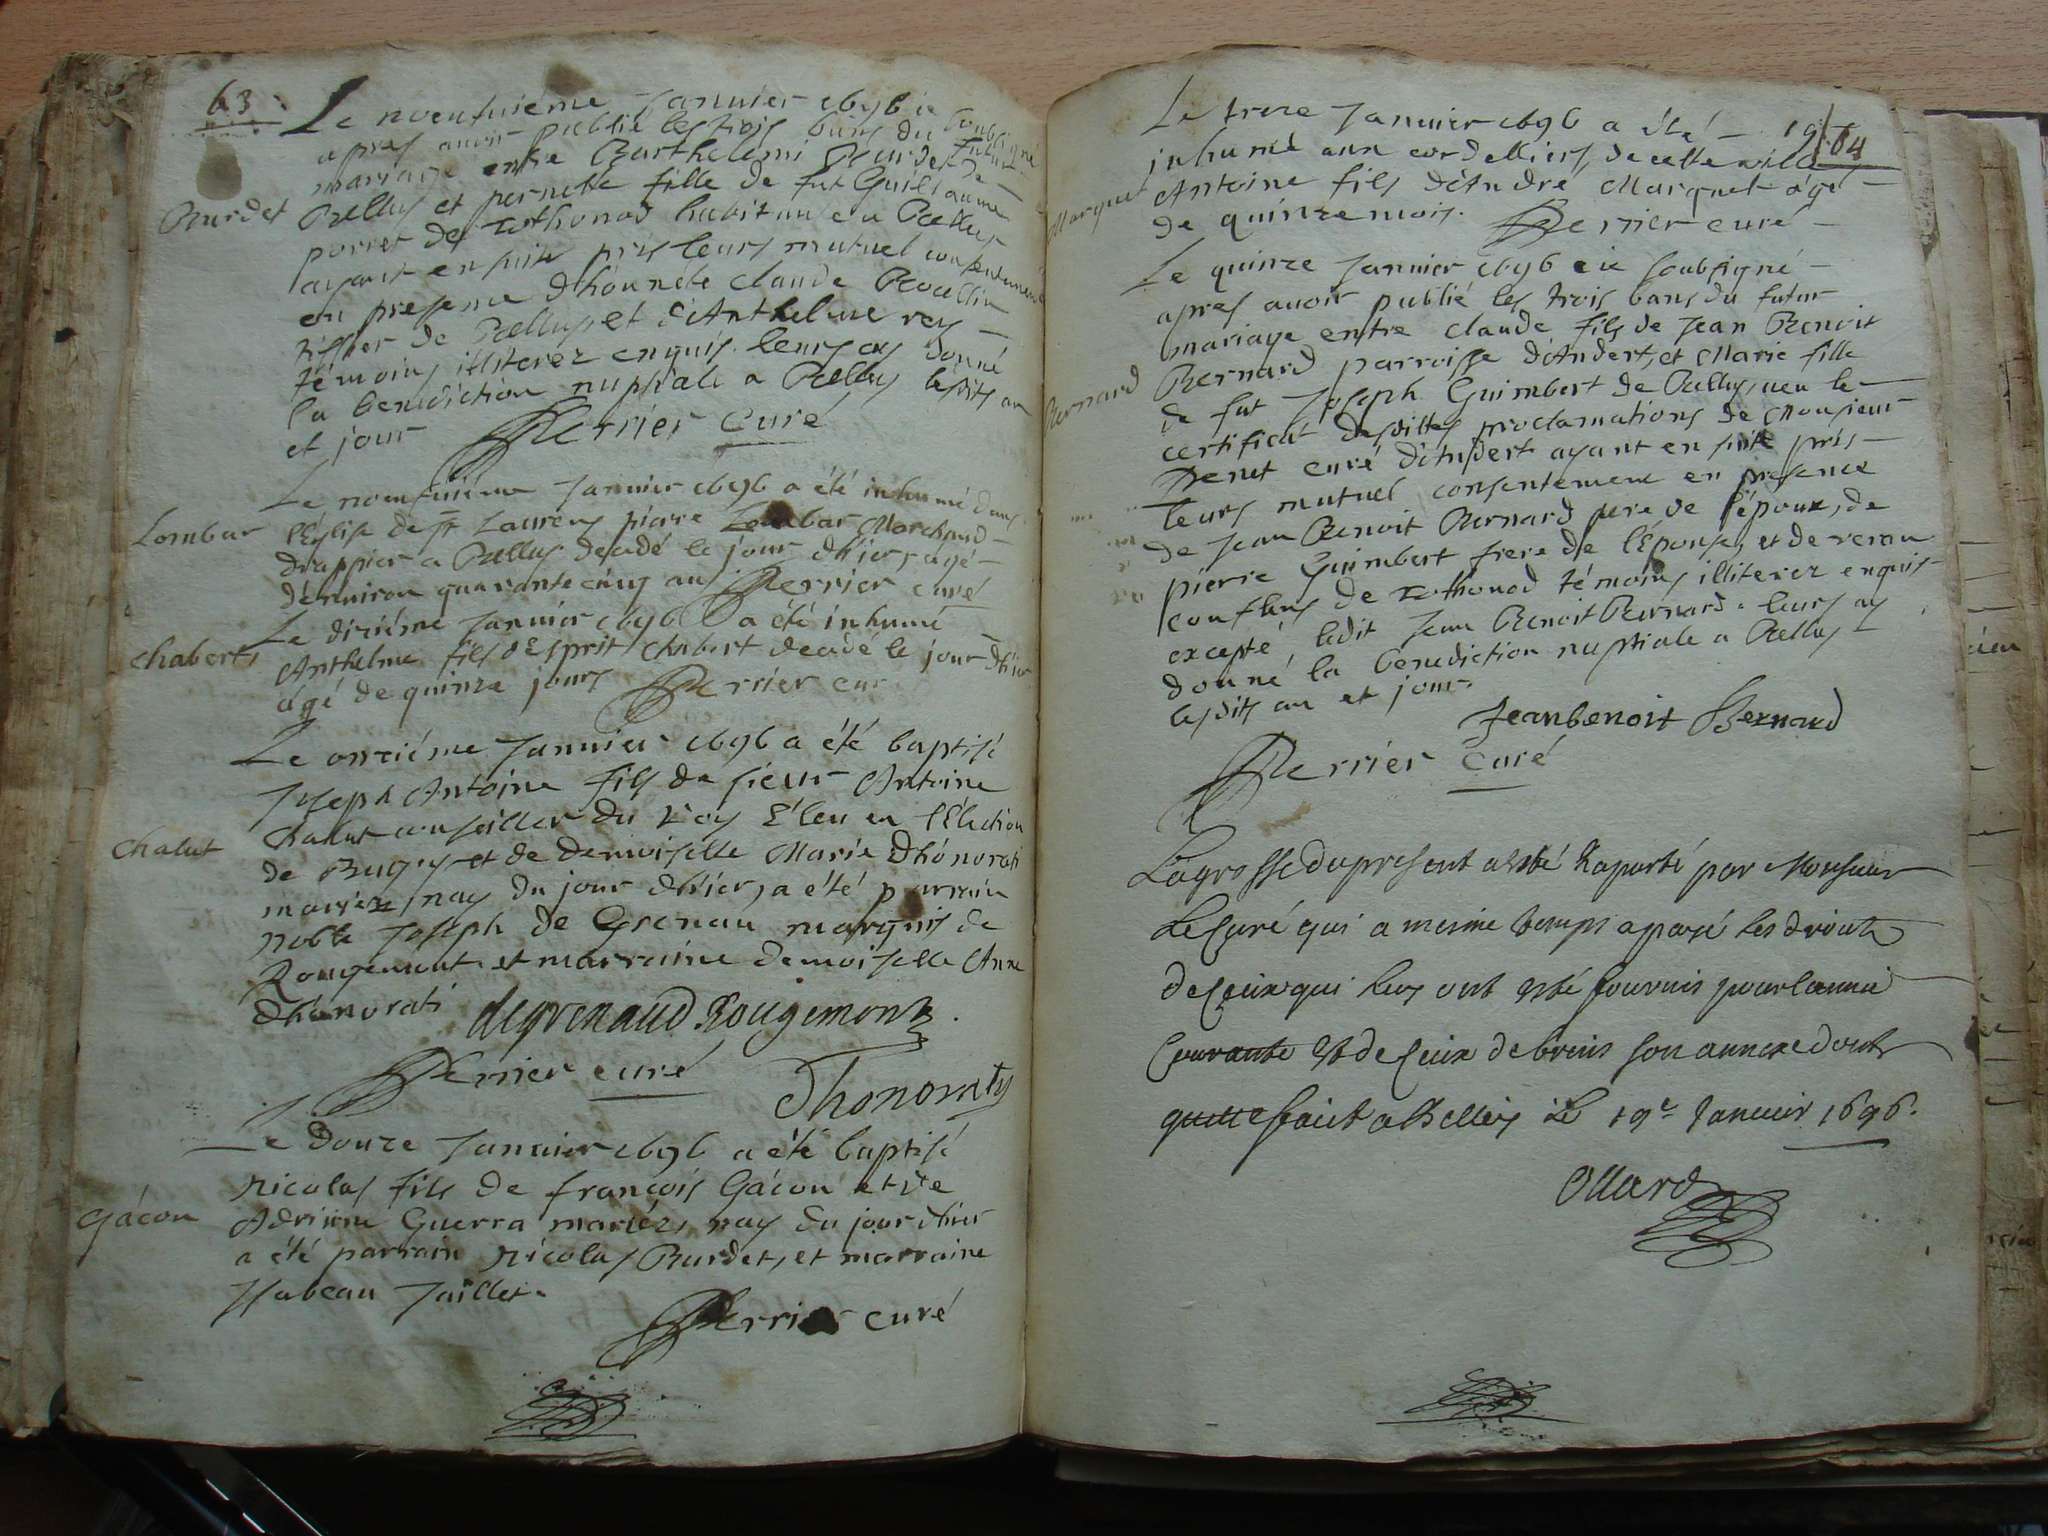 63
Le neenfuiéme Januier 1696 ie soubsigné
apres auoir publié les trois bans du futur
mariage entre Barthelemi Burdet de
Burdet
Belley et pernette fille de fut Guillaume
porret de Rothonod habitans a Belley
ayant ensuite pris leurs mutuel consentement
en presence d'honnete claude
tissier de Belley, et d'Anthelme rey
témoins illiterez enquis. leurs ay donné
la benediction nuptiale a Belley lesdits an
et jour
Perrier curé
Le neenfuiéme Januier 1696 a été inhumé dans
Lombar
l'Eglise de St Laurens pierre Lombar Marchand
drappier a Belley decedé le jour d'hier, agé
d'enuiron quarante cinq ans Perrier curé
Le diziéme Januier 1696 a été inhumé
chabert
Anthelme fils d'Esprit chabert decedé le jour d'hier
agé de quinze jours Perrier cur
Le onziéme Januier 1696 a été baptisé
Joseph Antoine fils de sieur Antoine
chalut
chalut conseiller du Roy Eleu en l'Election
de Bugey et de demoiselle Marie d'honorati
mariez, nay du jour d'hier, a été parrain
noble Joseph de Grenau marquis de
Rougemont et marraine demoiselle Anne
d'honorati
degrenaud Rougemont
Perrier curé
Dhonoraty
Le douze Januier 1696 a été baptisé
Nicolas fils de françois Gácon et de
Gácon
Adriene Guerra mariéz, nay du jour d'hier
a été parrain Nicolas Burdet, et marraine
Ysabeau Jaillet.
Perrier curé
Le treze Januier 1696 a été
64
inhumé aux cordelliers de cette ville
Marquet
Antoine fils d'André Marquet agé
de quinze mois. Perrier curé
Le quinze Januier 1696 ie soubsigné
apres auoir publié les trois bans du futur
mariage entre claude fils de Jean Benoit
Bernard
Bernard parroisse d'Andert, et Marie fille
de fut Joseph Guimbert de Belley, ueu le
certificat desdittes proclamations de Monsieur
curé d'Andert ayant ensuite pris
leurs mutuel consentement en presence
de Jean Benoit Bernard pere de l'époux, de
pierre Guimbert frere de l'Epouse, et de
de Rothonod témoins illiterez enquis
excepté, ledit Jean Benoit Bernard. leurs ay
donné la benediction nuptiale a Belley
lesdits an et jour.
Jeanbenoit Bernard
Perrier curé
La grosse du present a esté Raporté par Monsieur
Le Curé qui a mesme temps a payé les droits
de Ceux qui luy ont esté fournis pour lannée
Courante et de Ceux de brens son annexe dont
quitte faict a Belley Le 19e Januier 1696.
Ollard